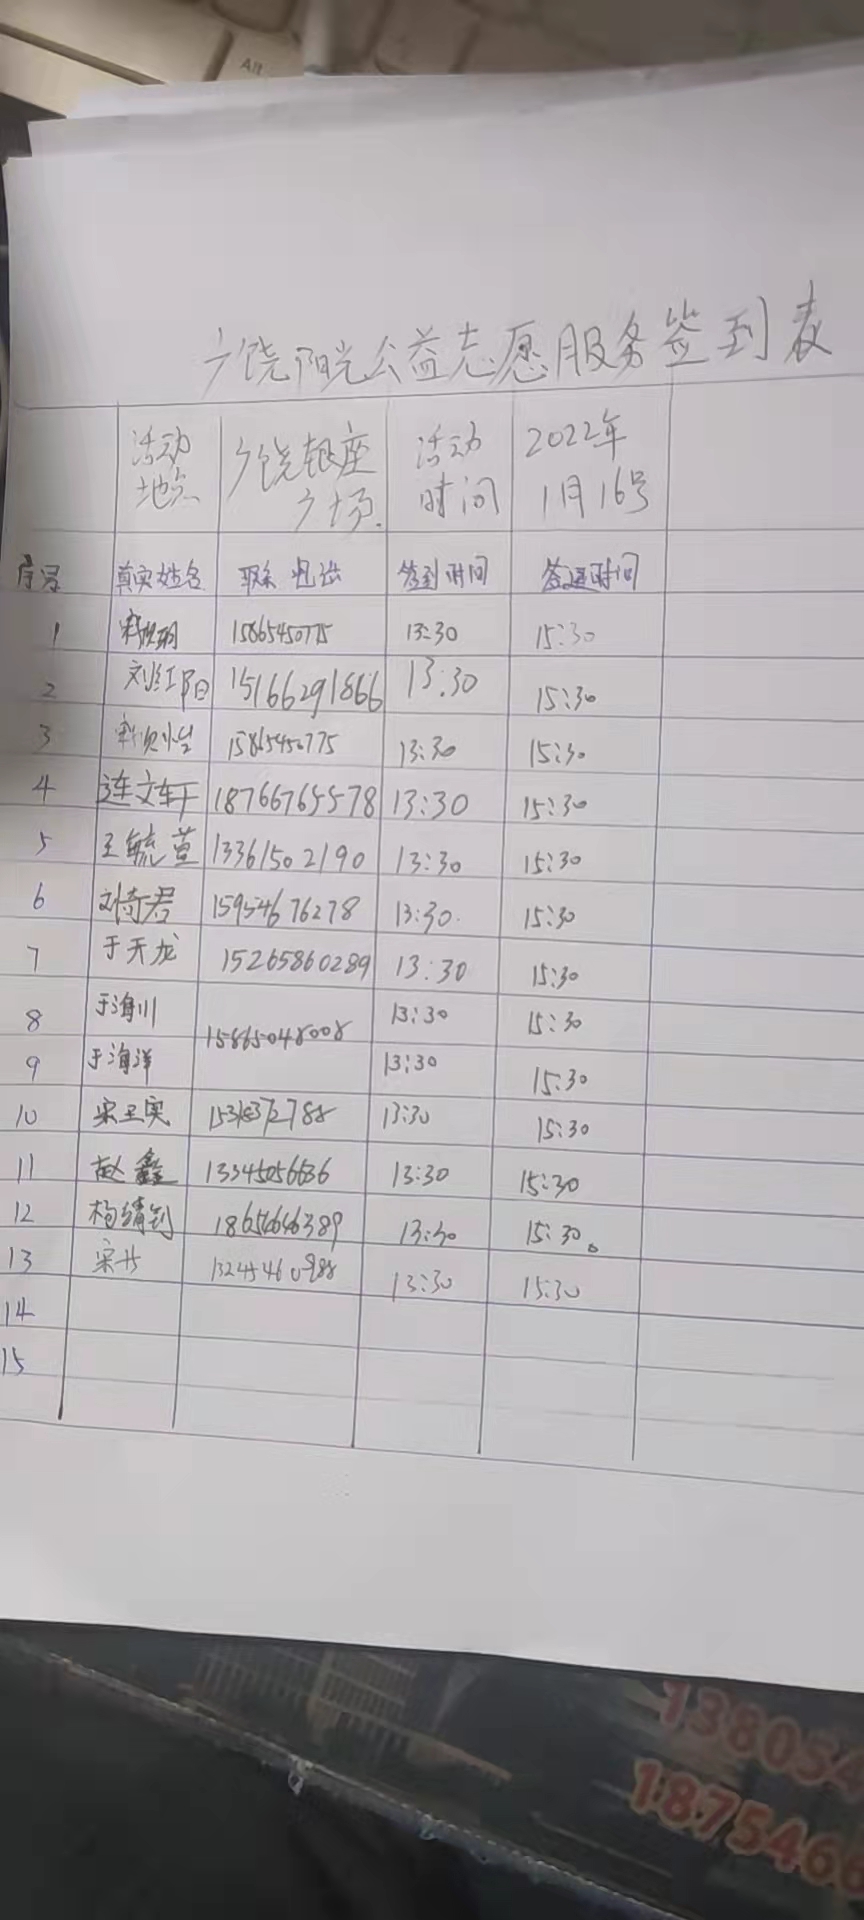 Alt
广饶阳光公益志愿服务签到表
活动地点 广饶银座广场. 活动时间 2022年1月16号
序号 真实姓名 联系电话 签到时间 签退时间
1 15865450775 13:30 15:30
2 刘红阳 15166291866 13:30 15:30
3 15865450775 13:30 15:30
4 连文轩 18766765578 13:30 15:30
5 王毓萱 13361502190 13:30 15:30
6 刘奇君 15954676278 13:30. 15:30
7 于天龙 15265860289 13:30 15:30
8 于海川 15865048008 13:30 15:30
9 于海洋 13:30 15:30
10 宋卫奥 13:30 15:30
11 赵鑫 13345056636 13:30 15:30
12 13:30 15:30。
13 13:30 15:30
14
15
138054
1875466